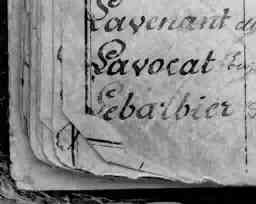 Lavenant
Lavocat
Lebarbier